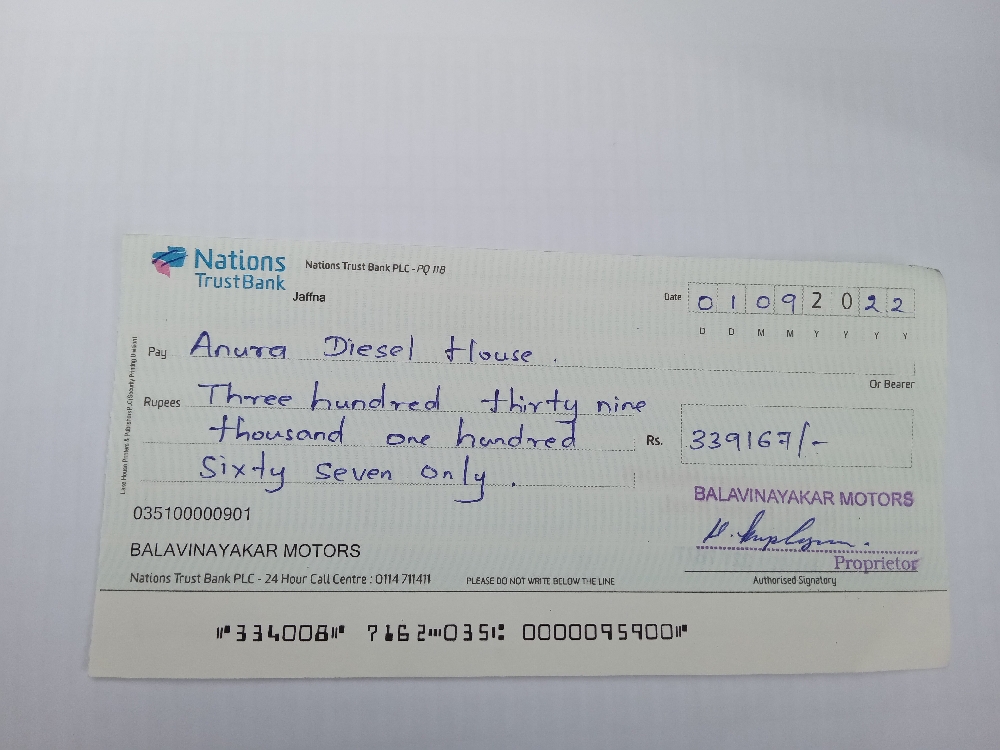 Nations
TrustBank
Nations Trust Bank PLC - PQ 118
Jaffna
Date 0 1 0 9 2 0 2 2
D D M M Y Y Y Y
Pay Anura Diesel House .
Or Bearer
Rupees Three hundred thirty nine
thousand one hundred
Sixty seven only .
Rs. 339167/-
035100000901
BALAVINAYAKAR MOTORS
BALAVINAYAKAR MOTORS
Proprietor
Authorised Signatory
Nations Trust Bank PLC - 24 Hour Call Centre : 0114 711411
PLEASE DO NOT WRITE BELOW THE LINE
⑈334008⑈ 7162⑉035⑆ 0000095900⑈